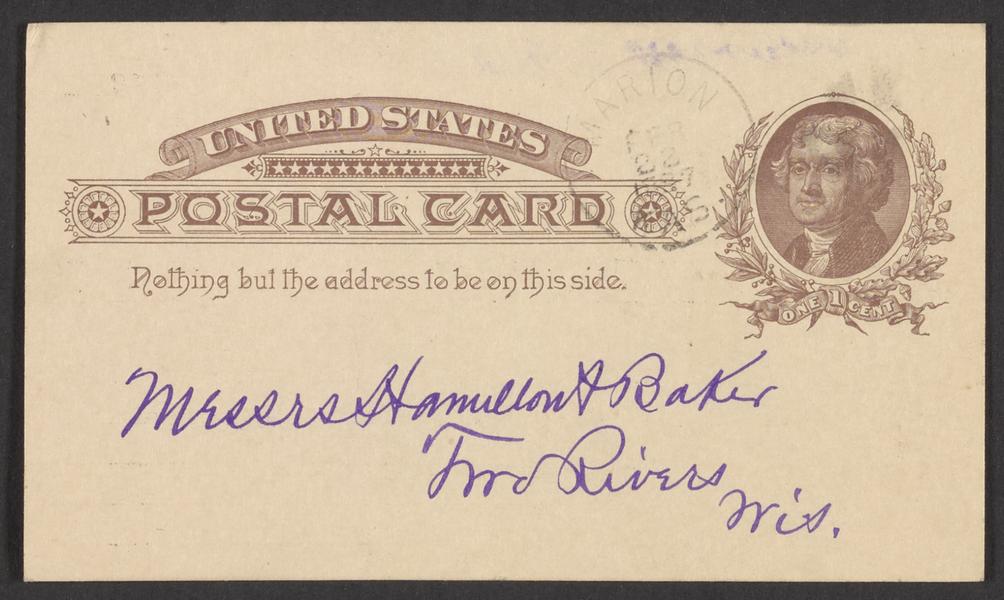 UNITED STATES
POSTAL CARD
Nothing but the address to be on this side.
MARION
ONE 1 CENT
Messrs Hamilton & Baker
Two Rivers
Wis.